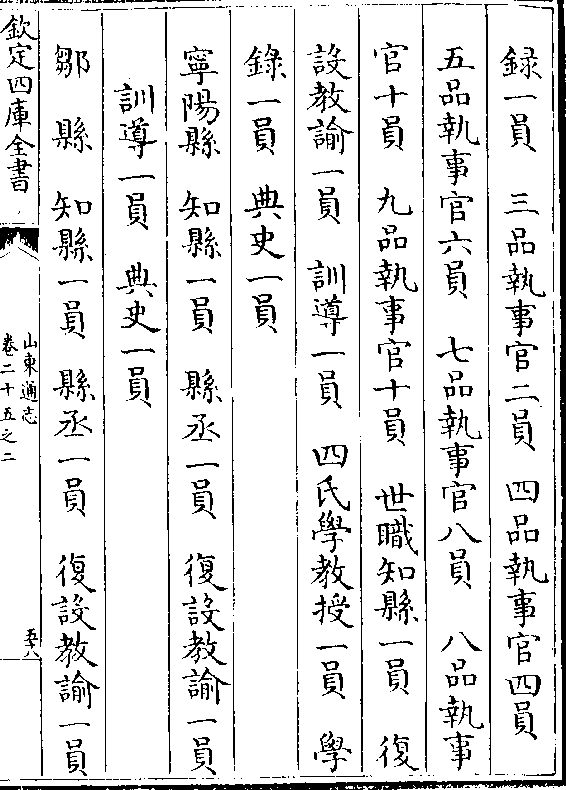 録一員　三品執事官二員　四品執事官四員
五品執事官六員　七品執事官八員　八品執事
官十員　九品執事官十員　世職知縣一員　復
設教諭一員　訓導一員　四氏學教授一員　學
錄一員　典史一員
寧陽縣　知縣一員　縣丞一員　復設教諭一員
訓導一員　典史一員
鄒縣　知縣一員　縣丞一員　復設教諭一員
欽定四庫全書
山東通志
卷二十五之二
五十八